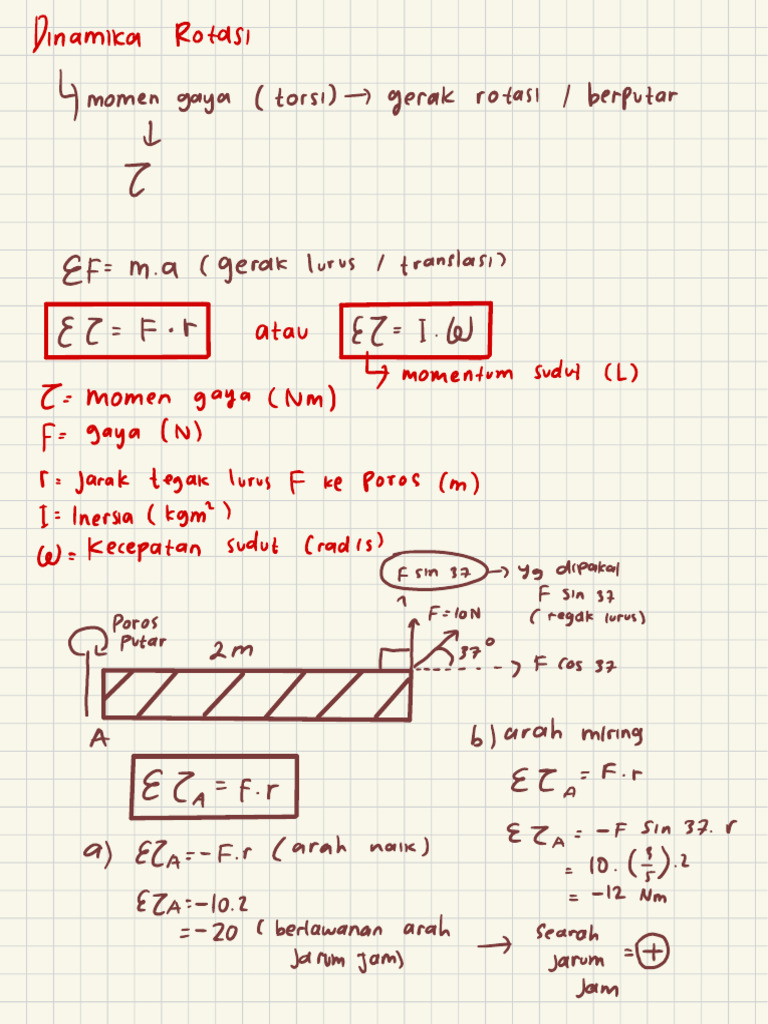 Dinamika Rotasi
↳ momen gaya (torsi) → gerak rotasi / berputar
↓
τ
ΣF = m.a (gerak lurus / translasi)
Στ = F . r atau Στ = I . ω
↳ momentum sudut (L)
τ = momen gaya (Nm)
F = gaya (N)
r = jarak tegak lurus F ke poros (m)
I = Inersia (kgm²)
ω = Kecepatan sudut (rad/s)
F sin 37 → yg dipakai
F sin 37
(tegak lurus)
Poros
Putar
2 m
F = 10N
37°
F cos 37
A
Στ_A = F.r
a) Στ_A = -F.r (arah naik)
Στ_A = -10.2
= -20 (berlawanan arah
jarum jam) → searah
jarum
jam
= +
b) arah miring
Στ_A = F.r
Στ_A = -F sin 37. r
= 10. (3/5).2
= -12 Nm